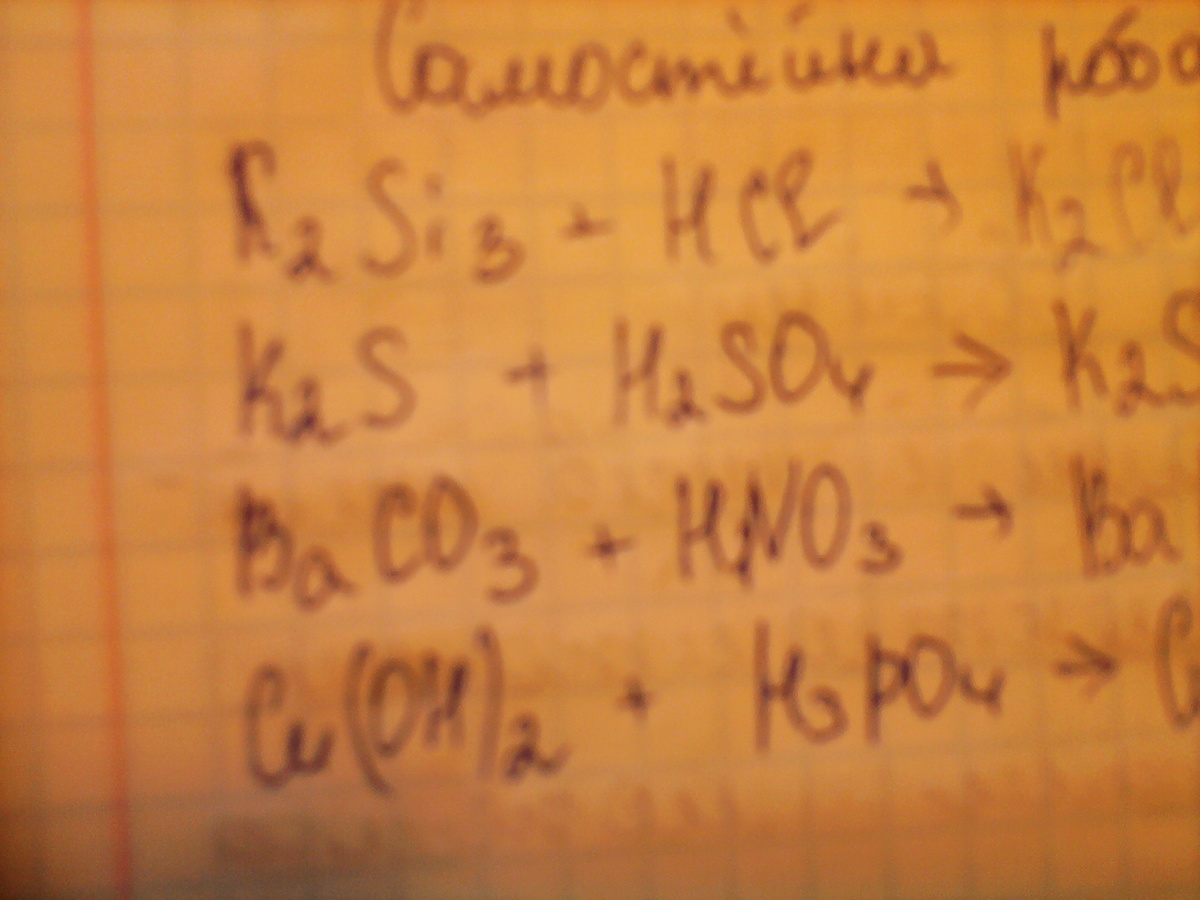 Самостійна робо
K₂Si₃ + HCl → K₂Cl
K₂S + H₂SO₄ → K₂S
BaCO₃ + HNO₃ → Ba
Cu(OH)₂ + H₃PO₄ → C